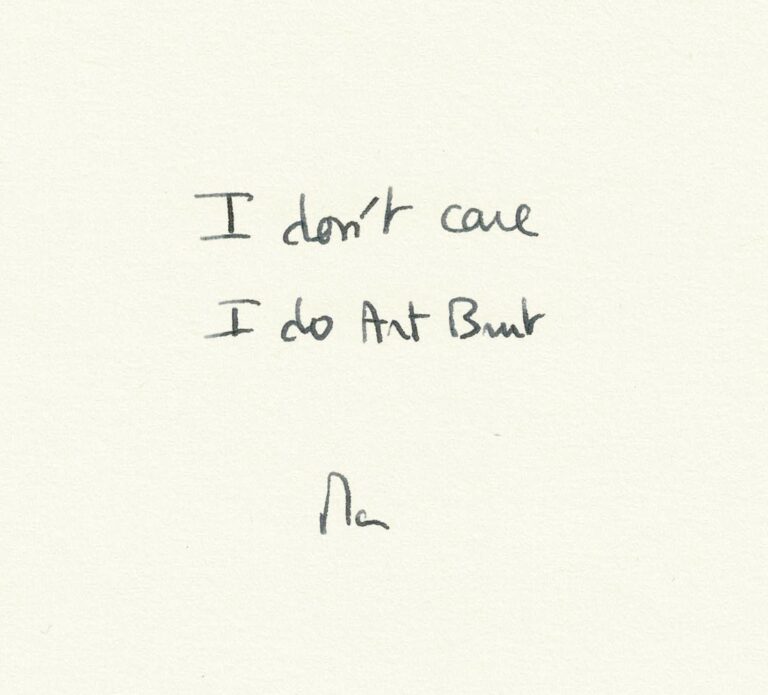 I don't care
I do Art Brut